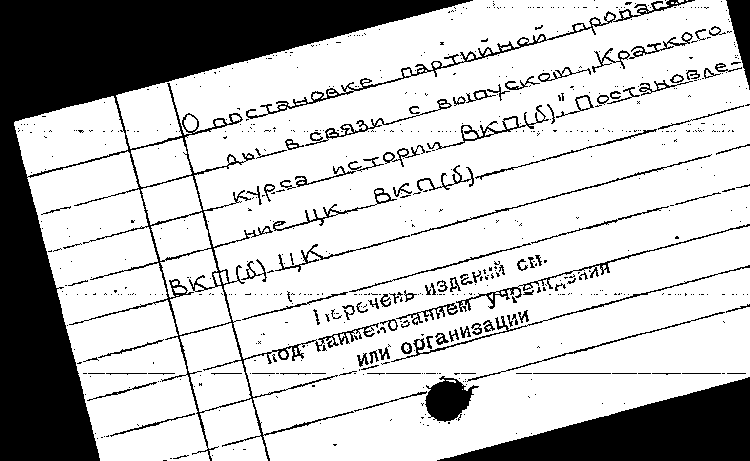 О постановке партийной пропаган
ды в связи с выпуском „Краткого
курса истории ВКП(б)". Постановле-
ние ЦК ВКП(б).
ВКП(б) ЦК.
Перечень изданий см.
под наименованием учреждения
или организации